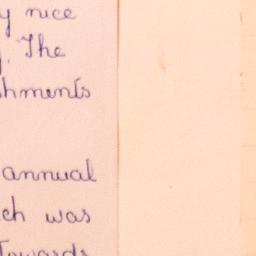 y nice
. The
hments
annual
ch was
Towards